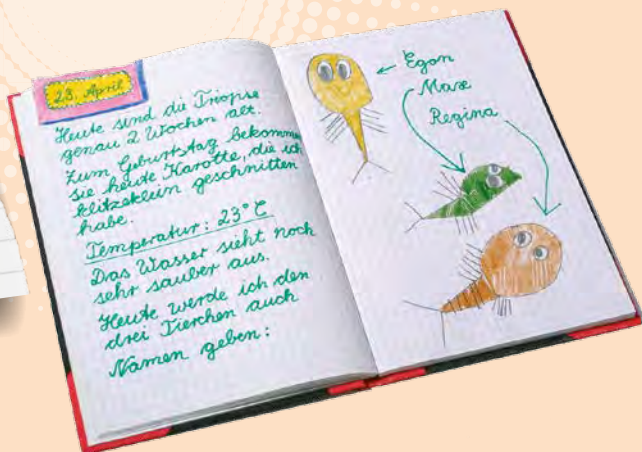 23. April
Heute sind die Triopse
genau 2 Wochen alt.
Zum Geburtstag bekommen
sie heute Karotte, die ich
klitzeklein geschnitten
habe.
Temperatur: 23° C
Das Wasser sieht noch
sehr sauber aus.
Heute werde ich den
drei Tierchen auch
Namen geben:
Egon
Max
Regina